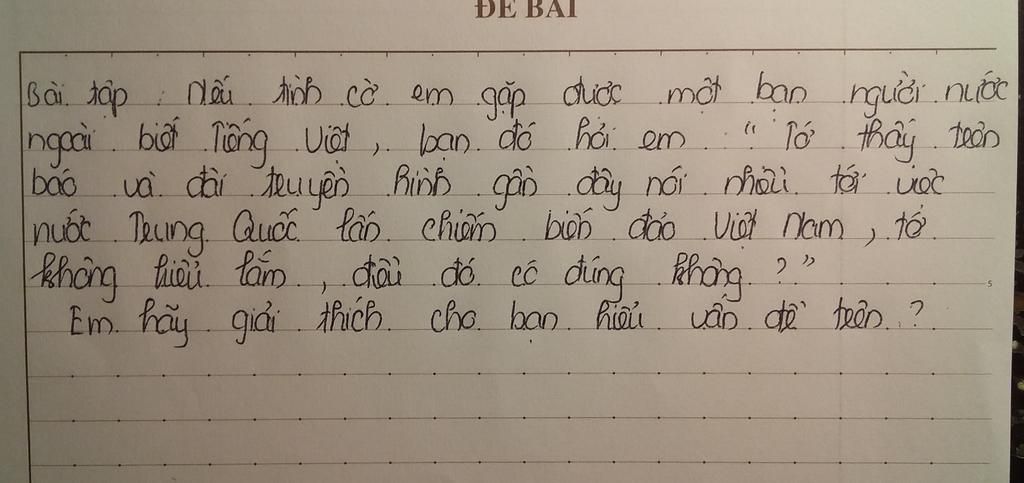 ĐỀ BÀI
Bài tập : Nếu tình cờ em gặp được một bạn người nước
ngoài biết Tiếng Việt, bạn đó hỏi em "Tớ thấy trên
báo và đài truyền hình gần đây nói nhiều tới việc
nước Trung Quốc lấn chiếm biển đảo Việt Nam, tớ
không hiểu lắm, điều đó có đúng không ?"
Em hãy giải thích cho bạn hiểu vấn đề trên ?
5